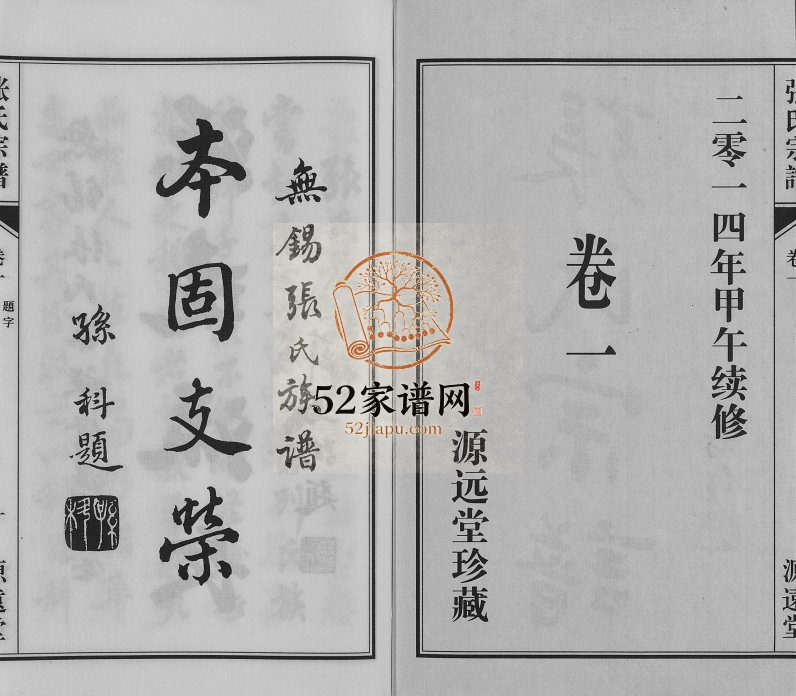 张氏宗譜
卷一
源遠堂
二零一四年甲午续修
卷一
源远堂珍藏
52家谱网
52jiapu.com
無錫張氏族譜
本固支榮
孫科題
张氏宗譜
卷一
題字
源遠堂